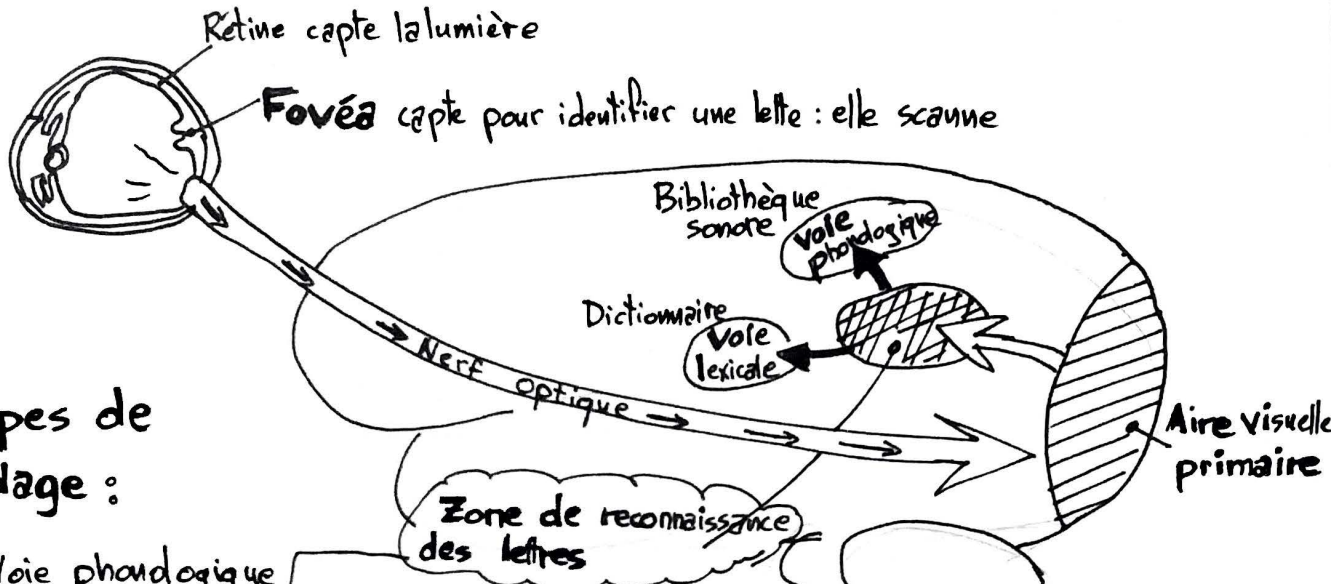 Rétine capte la lumière
Fovéa capte pour identifier une lette : elle scanne
Bibliothèque
sonore
Voie
phondogique
Dictionnaire
Voie
lexicale
Nerf optique
pes de
dage :
Aire visuelle
primaire
Zone de reconnaissance
des lettres
Voie phondogique